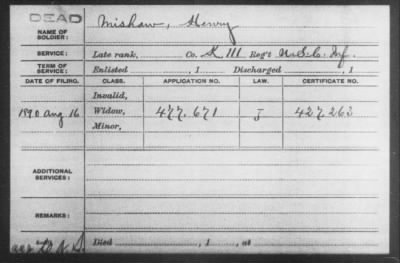 DEAD
NAME OF SOLDIER: Mishaw, Henry
SERVICE: Late rank, Co. K 111 Reg't U.S.C. Inf.
TERM OF SERVICE: Enlisted , 1 Discharged , 1
DATE OF FILING. CLASS. APPLICATION NO. LAW. CERTIFICATE NO.
Invalid,
1890 Aug 16 Widow, 477.671 J 427.263
Minor,
ADDITIONAL SERVICES:
REMARKS:
Died , 1 , at